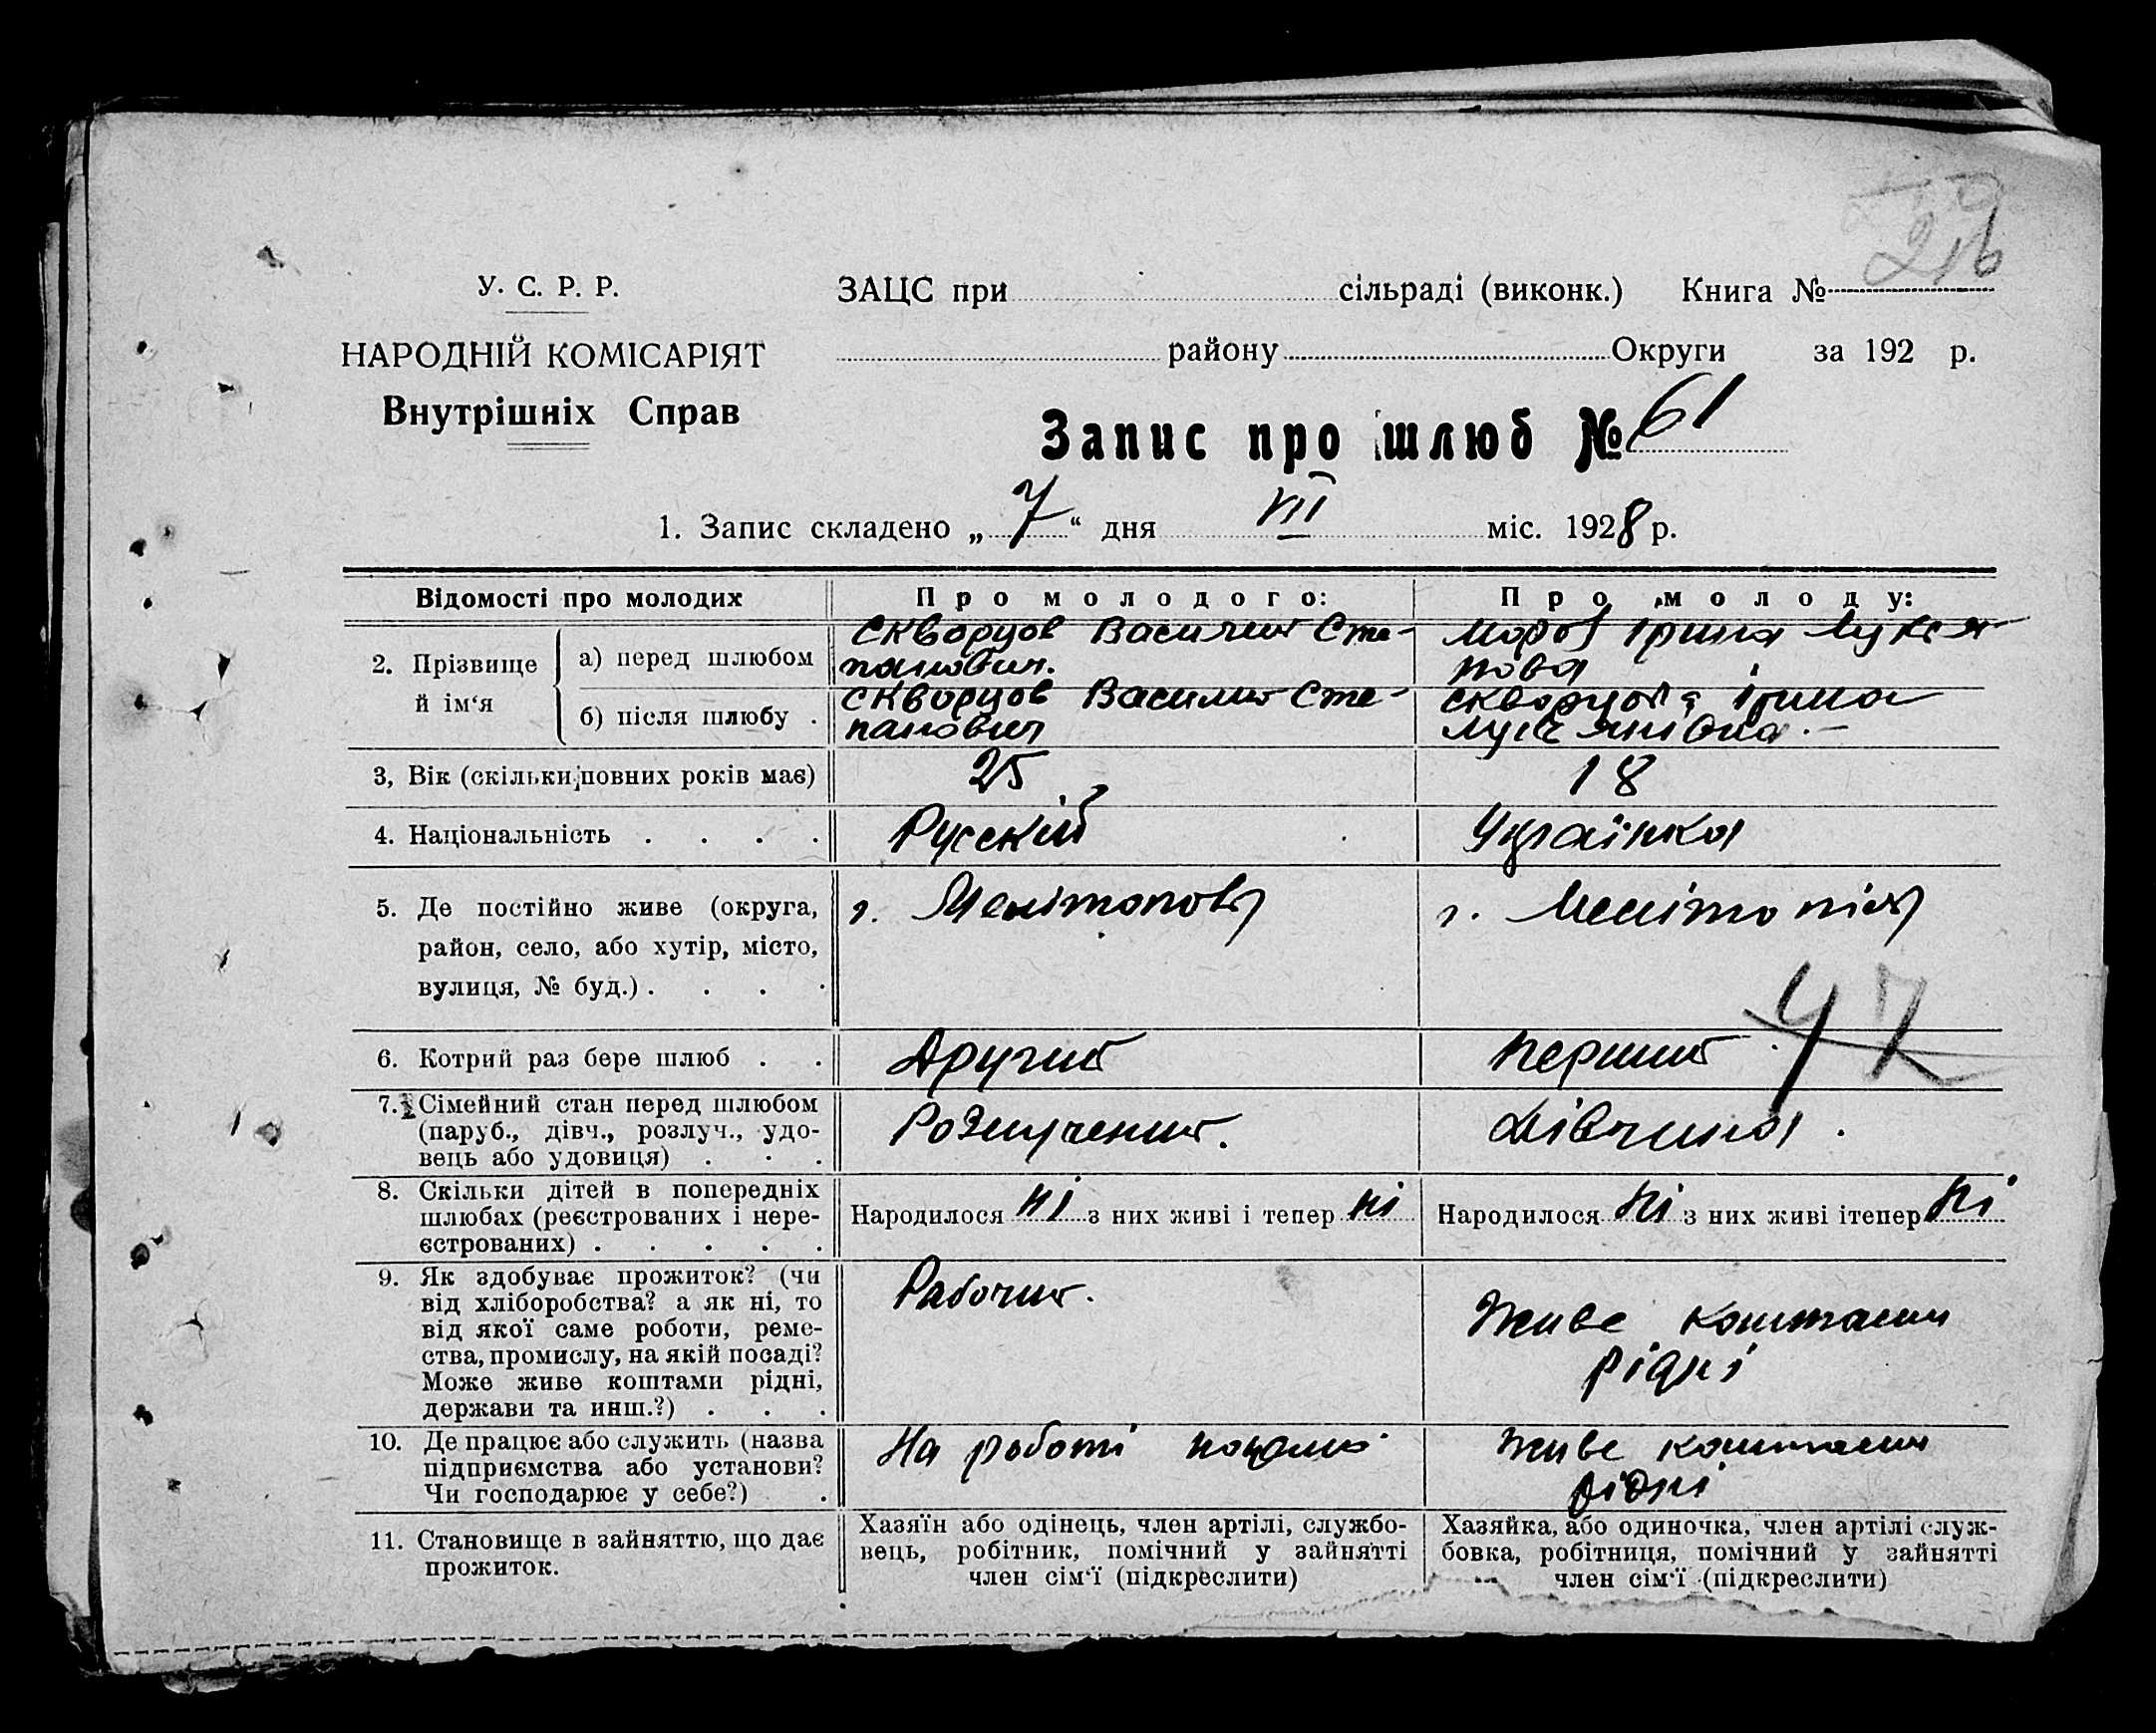 216
У. С. Р. Р.
НАРОДНІЙ КОМІСАРІЯТ
Внутрішніх Справ
ЗАЦС при сільраді (виконк.) Книга №
району Округи за 192 р.
Запис про шлюб № 61
1. Запис складено „ 7 “ дня VIII міс. 1928 р.
Відомості про молодих Про молодого: Про молоду:
2. Прізвище й ім‘я
а) перед шлюбом
Скворцов Василий Сте-
панович.
Мороз Ірина Лукея
нова
б) після шлюбу .
Скворцов Василий Сте-
панович
Скворцова Ірина
3, Вік (скільки повних років має) 25 18
4. Національність . . . . Русскій Українка
5. Де постійно живе (округа,
район, село, або хутір, місто,
вулиця, № буд.) . . . .
г. Мелітополь
г. Мелітопіль
47
6. Котрий раз бере шлюб . . Другий Перший
7. Сімейний стан перед шлюбом
(паруб., дівч., розлуч., удо-
вець або удовиця) . . .
Розлучений.
Дівчина.
8. Скільки дітей в попередніх
шлюбах (реєстрованих і нере-
єстрованих) . . . . .
Народилося ні з них живі і тепер ні
Народилося ні з них живі ітепер ні
9. Як здобуває прожиток? (чи
від хліборобства? а як ні, то
від якої саме роботи, реме-
ства, промислу, на якій посаді?
Може живе коштами рідні,
держави та инш.?) . . .
Рабочий.
Живе коштами
рідні
10. Де працює або служить (назва
підприємства або установи?
Чи господарює у себе?) .
На роботі
Живе коштами
рідні
11. Становище в зайняттю, що дає
прожиток.
Хазяїн або одінець, член артілі, службо-
вець, робітник, помічний у зайнятті
член сім‘ї (підкреслити)
Хазяйка, або одиночка, член артілі служ-
бовка, робітниця, помічний у зайнятті
член сім‘ї (підкреслити)